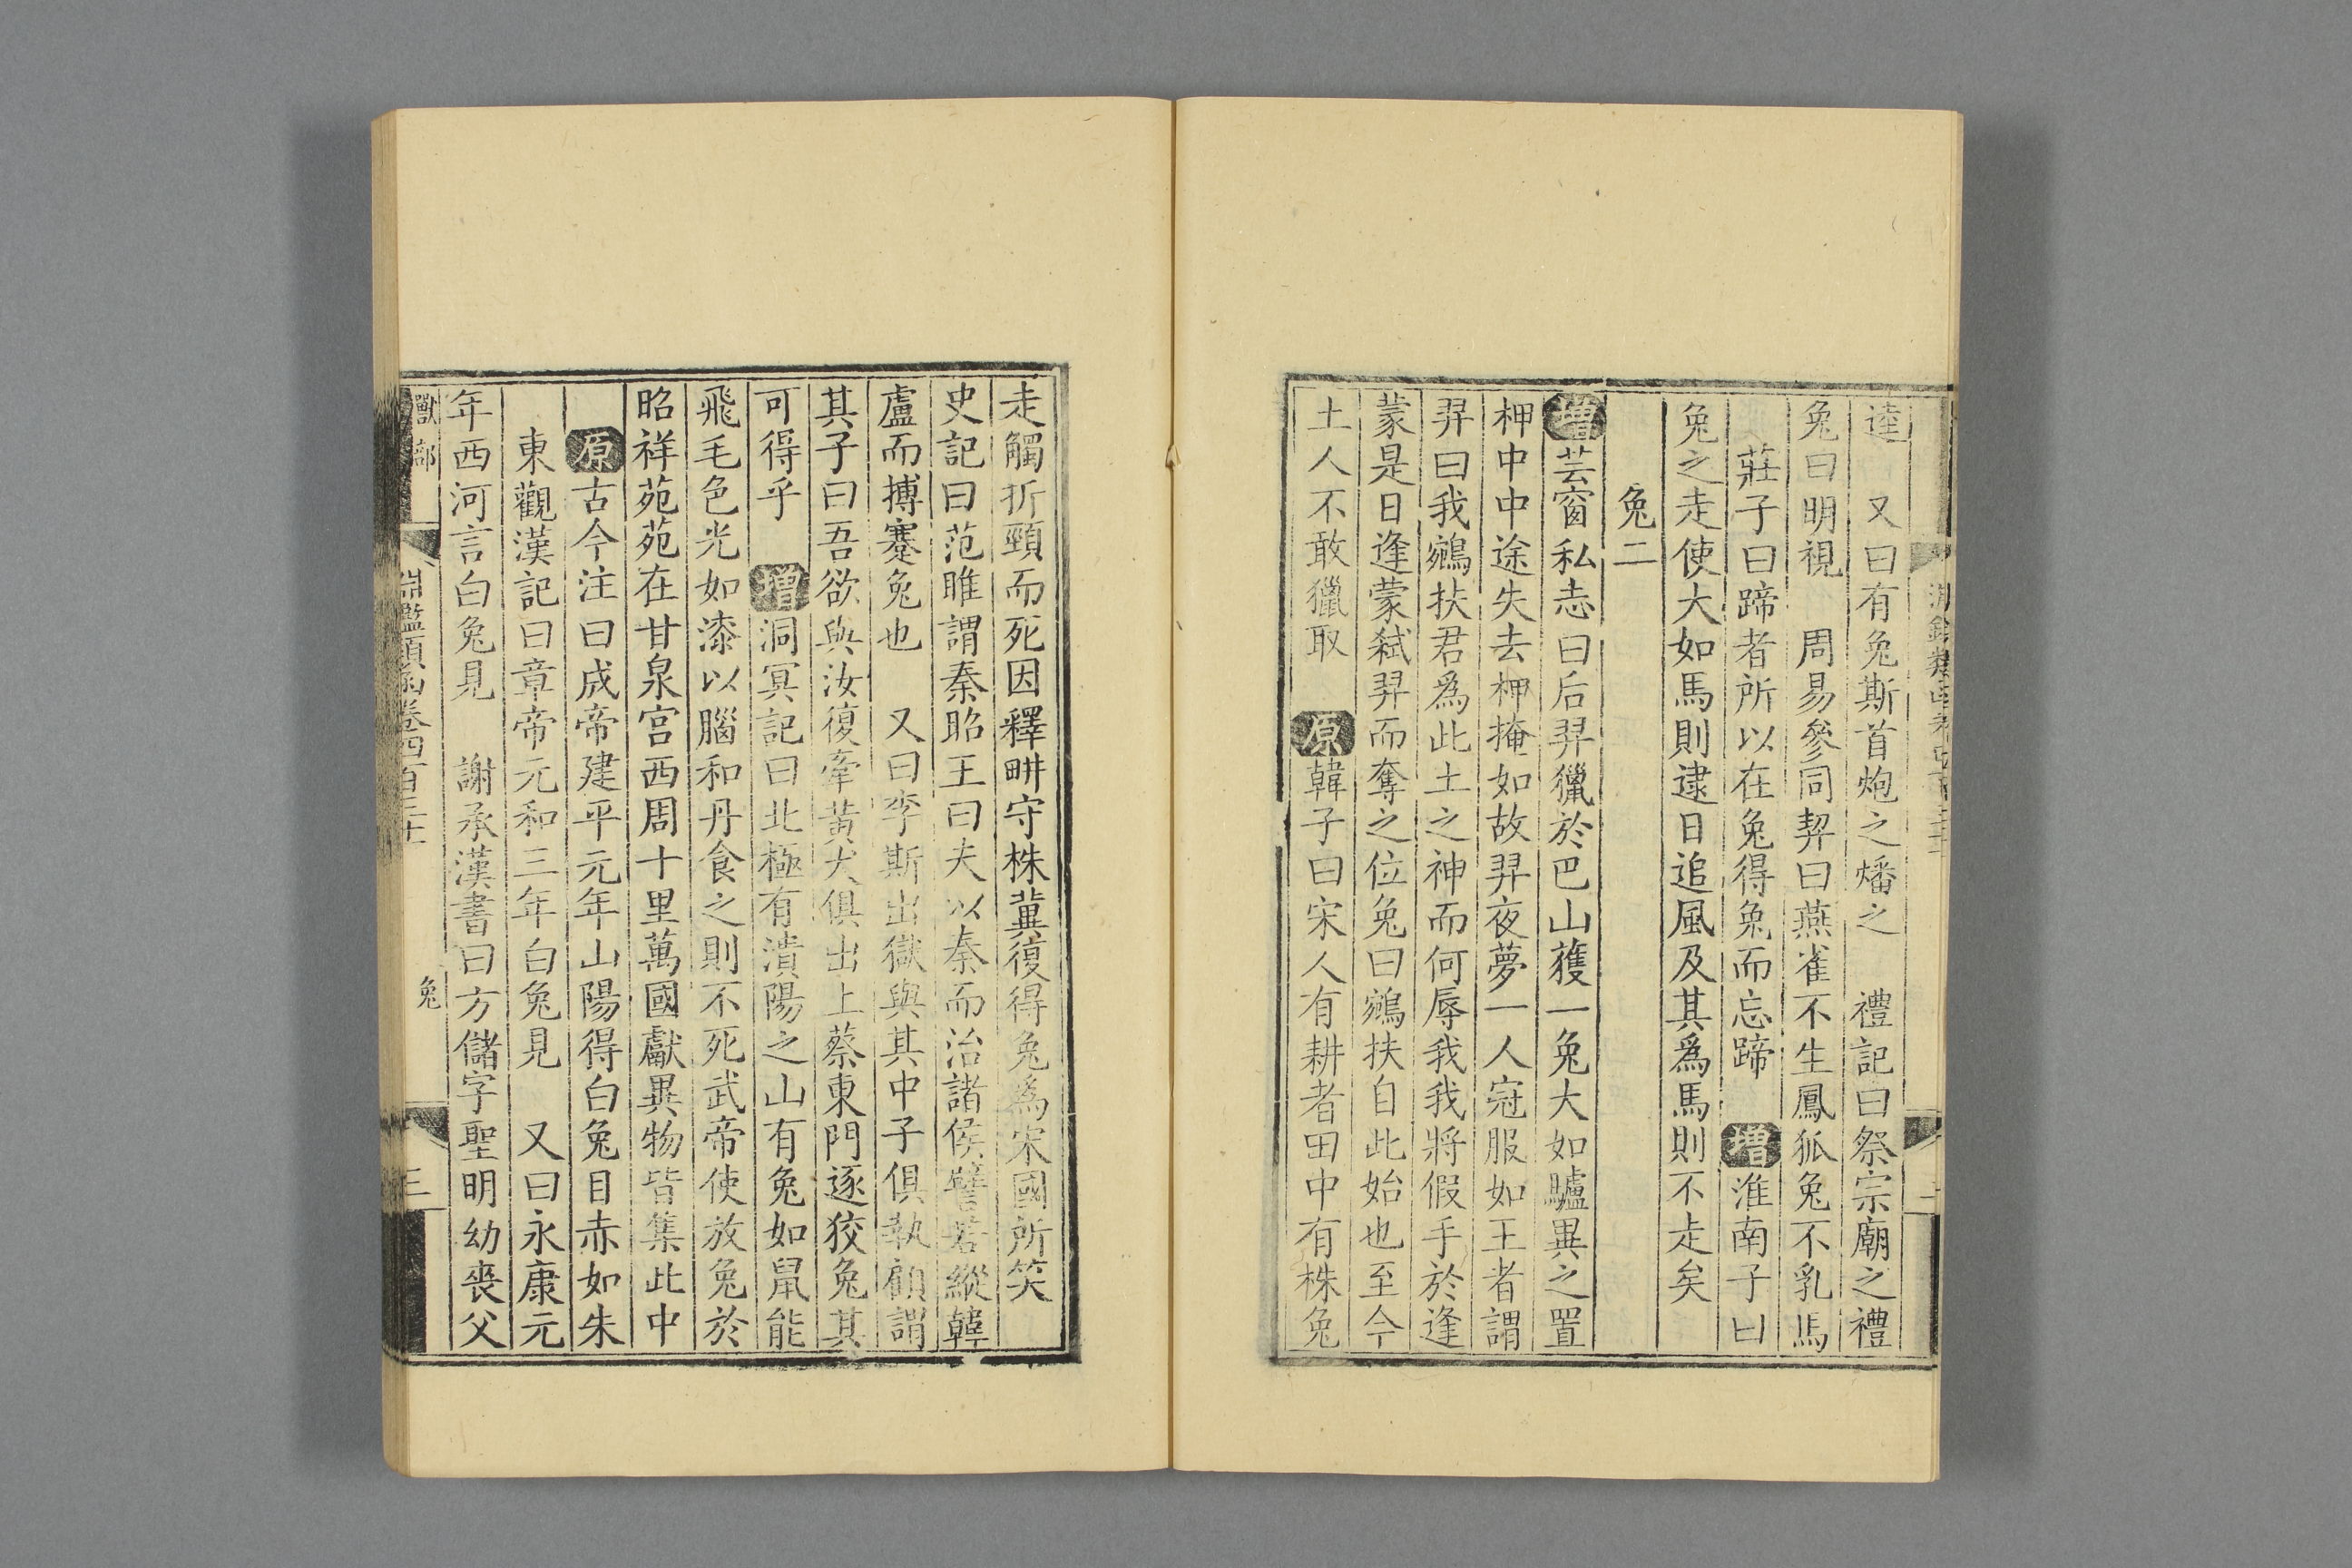 逵　又曰有兔斯首炮之燔之　禮記曰祭宗廟之禮
兔曰明視　周易參同契曰燕雀不生鳳狐兔不乳馬
莊子曰蹄者所以在兔得兔而忘蹄　增淮南子曰
兔之走使大如馬則逮日追風及其爲馬則不走矣
兔二
增芸窗私志曰后羿獵於巴山獲一兔大如驢異之置
柙中中途失去柙掩如故羿夜夢一人冠服如王者謂
羿曰我鵷扶君爲此土之神而何辱我我將假手於逢
蒙是日逢蒙弒羿而奪之位兔曰鵷扶自此始也至今
土人不敢獵取　原韓子曰宋人有耕者田中有株兔
走觸折頸而死因釋畊守株冀復得兔爲宋國所笑
史記曰范雎謂秦昭王曰夫以秦而治諸侯譬若縱韓
盧而搏蹇兔也　又曰李斯出獄與其中子俱執顧謂
其子曰吾欲與汝復牽黃犬俱出上蔡東門逐狡兔其
可得乎　增洞冥記曰北極有潰陽之山有兔如鼠能
飛毛色光如漆以腦和丹食之則不死武帝使放兔於
昭祥苑苑在甘泉宮西周十里萬國獻異物皆集此中
原古今注曰成帝建平元年山陽得白兔目赤如朱
東觀漢記曰章帝元和三年白兔見　又曰永康元
年西河言白兔見　謝承漢書曰方儲字聖明幼喪父
獸部　淵鑑類函卷四百三十一　兔　三